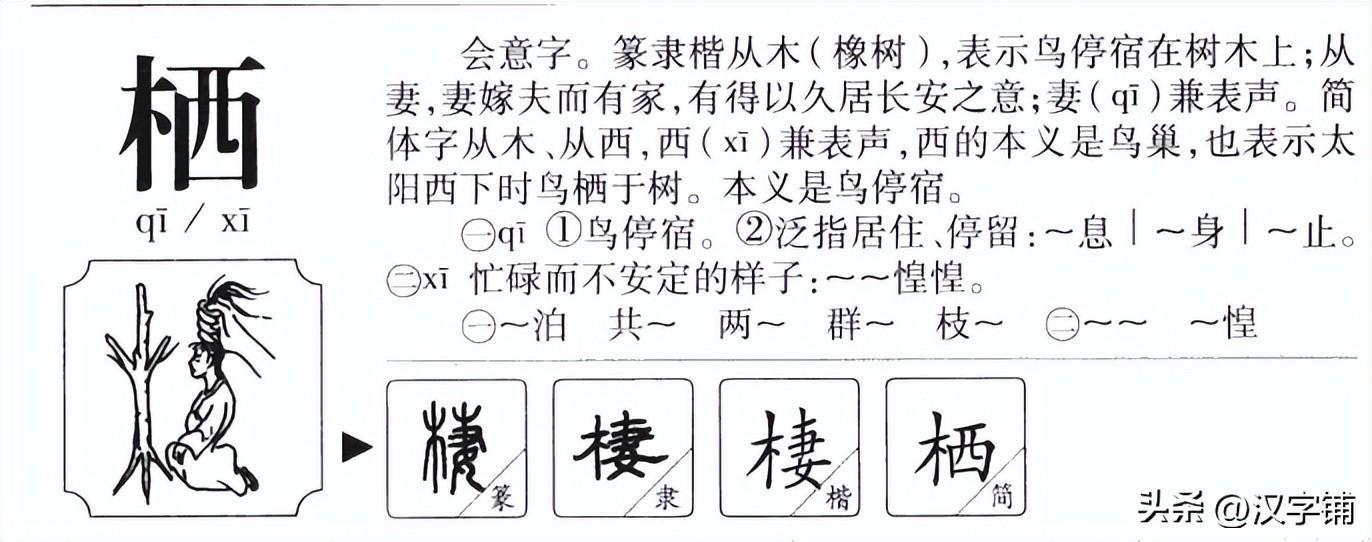 栖
qī / xī
会意字。篆隶楷从木(橡树),表示鸟停宿在树木上;从
妻,妻嫁夫而有家,有得以久居长安之意;妻(qī)兼表声。简
体字从木、从西,西(xī)兼表声,西的本义是鸟巢,也表示太
阳西下时鸟栖于树。本义是鸟停宿。
㊀qī ①鸟停宿。②泛指居住、停留:～息｜～身｜～止。
㊁xī 忙碌而不安定的样子:～～惶惶。
㊀～泊 共～ 两～ 群～ 枝～ ㊁～～ ～惶
棲 篆
棲 隶
棲 楷
栖 简
头条 @汉字铺